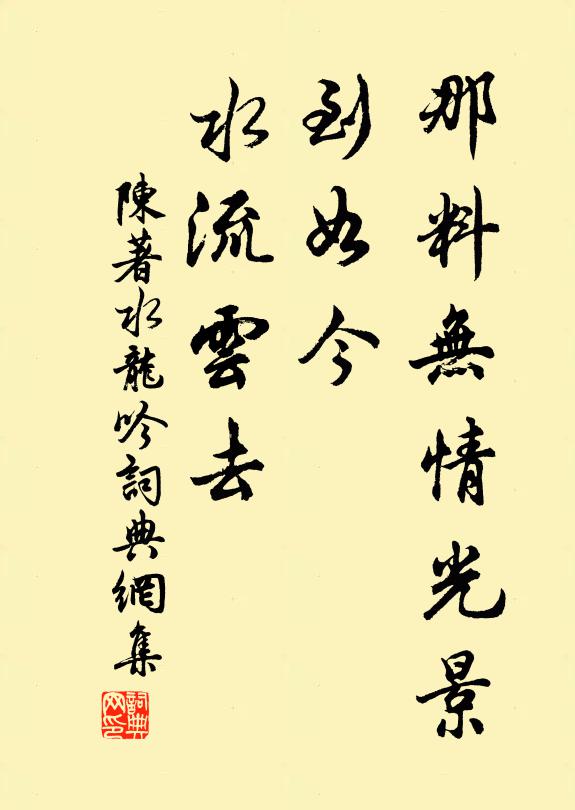 那料無情光景
到如今
水流雲去
陳著水龍吟詞典網集
詞典
网印